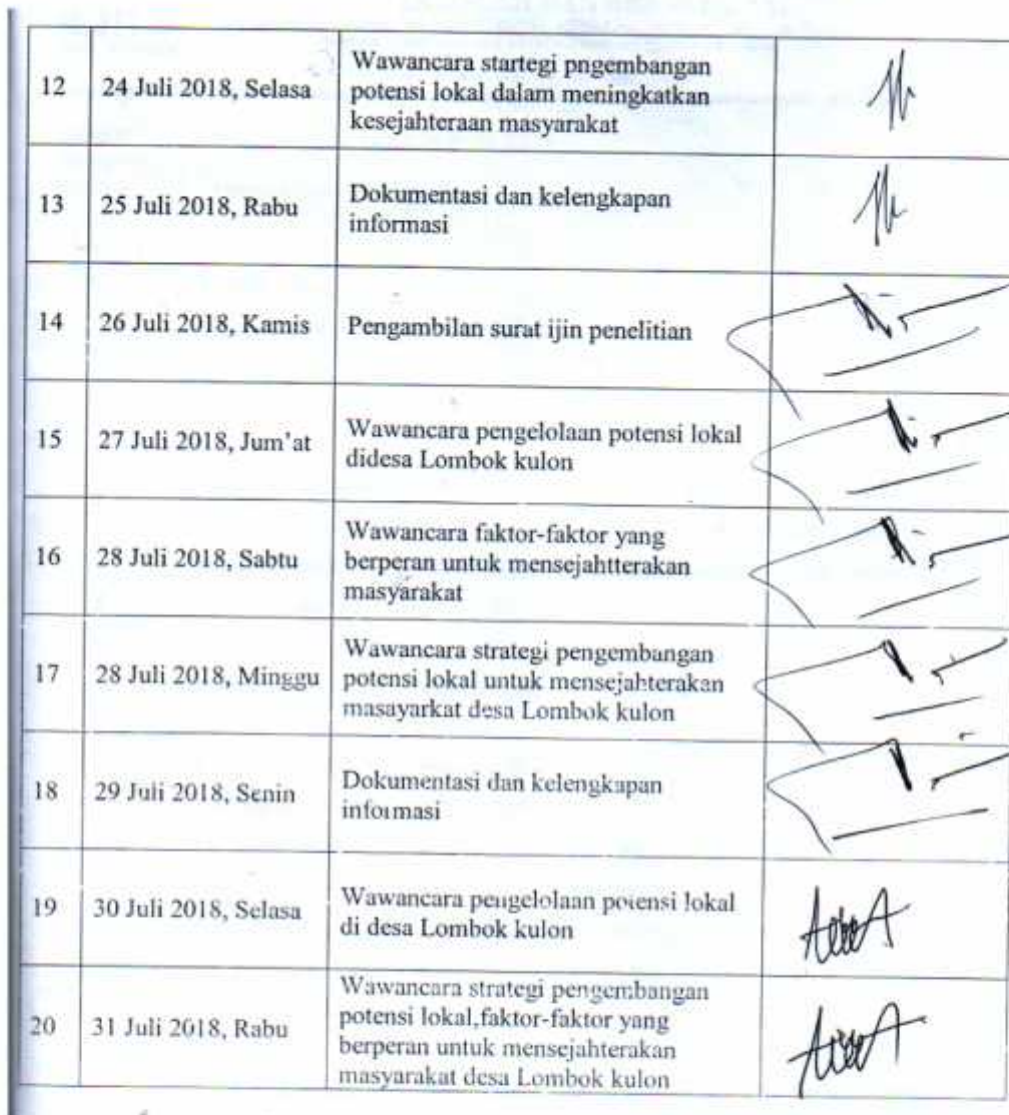 12 24 Juli 2018, Selasa Wawancara startegi pngembangan
potensi lokal dalam meningkatkan
kesejahteraan masyarakat
13 25 Juli 2018, Rabu Dokumentasi dan kelengkapan
informasi
14 26 Juli 2018, Kamis Pengambilan surat ijin penelitian
15 27 Juli 2018, Jum'at Wawancara pengelolaan potensi lokal
didesa Lombok kulon
16 28 Juli 2018, Sabtu Wawancara faktor-faktor yang
berperan untuk mensejahtterakan
masyarakat
17 28 Juli 2018, Minggu Wawancara strategi pengembangan
potensi lokal untuk mensejahterakan
masayarkat desa Lombok kulon
18 29 Juli 2018, Senin Dokumentasi dan kelengkapan
informasi
19 30 Juli 2018, Selasa Wawancara pengelolaan potensi lokal
di desa Lombok kulon
20 31 Juli 2018, Rabu Wawancara strategi pengembangan
potensi lokal,faktor-faktor yang
berperan untuk mensejahterakan
masyarakat desa Lombok kulon